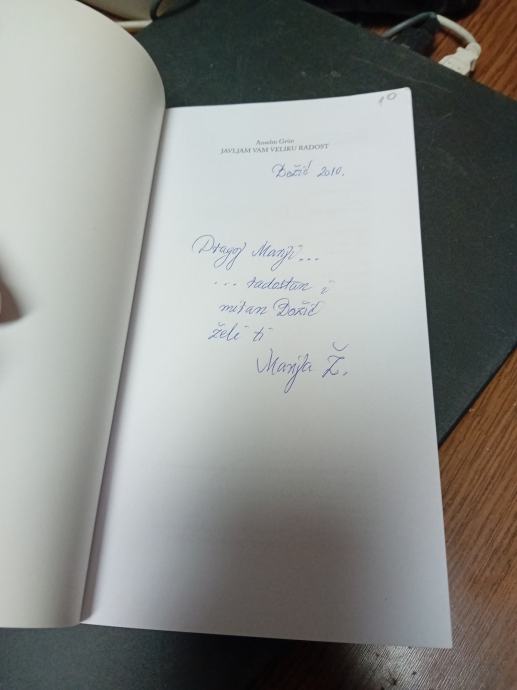 10
Anselm Grün
JAVLJAM VAM VELIKU RADOST
Božić 2010.
Dragoj Mariji...
... radostan i
miran Božić
želi ti
Marija Ž.